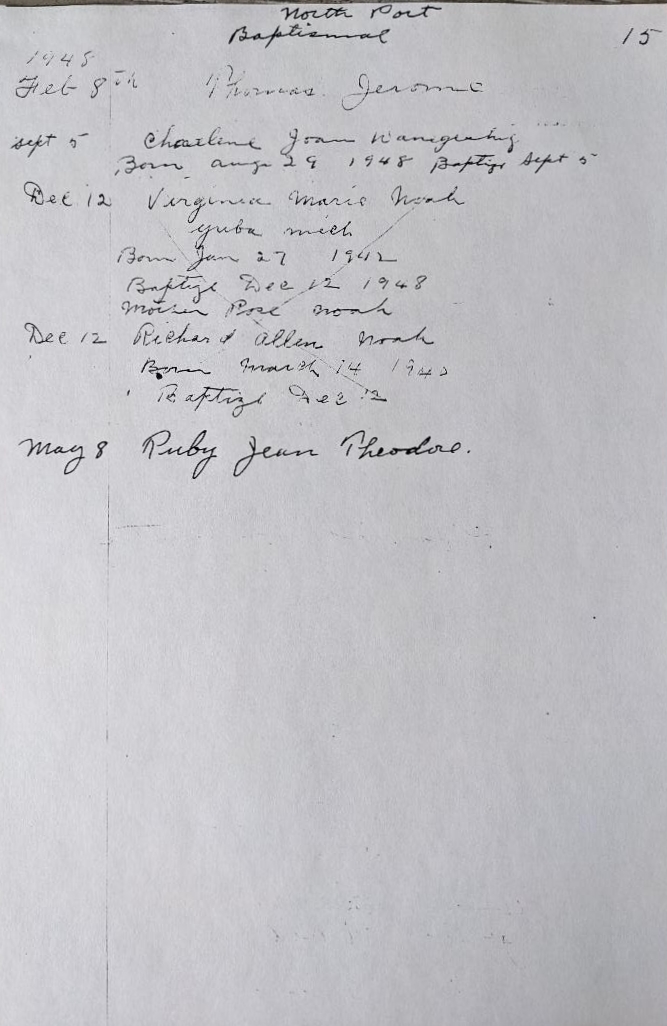 North Port
Baptismal 15
1948
Feb 8th Thomas Jerome
Sept 5 Charlene Joan
Born aug 29 1948 Baptize Sept 5
Dec 12 Virginia Marie Noah
yuba mich
Born Jan 27 1942
Baptize Dec 12 1948
Mother Rose noah
Dec 12 Richard Allen Noah
Born march 14
Baptize Dec 12
May 8 Ruby Jean Theodore.